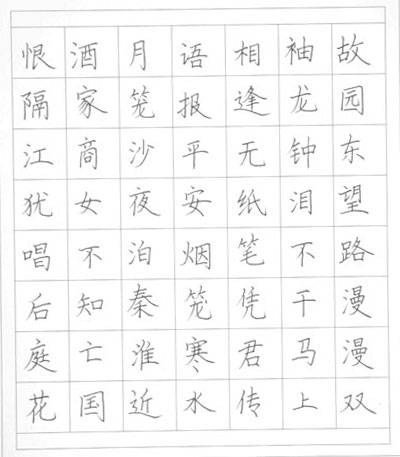 故园东望路漫漫双
袖龙钟泪不干马上
相逢无纸笔凭君传
语报平安烟笼寒水
月笼沙夜泊秦淮近
酒家商女不知亡国
恨隔江犹唱后庭花